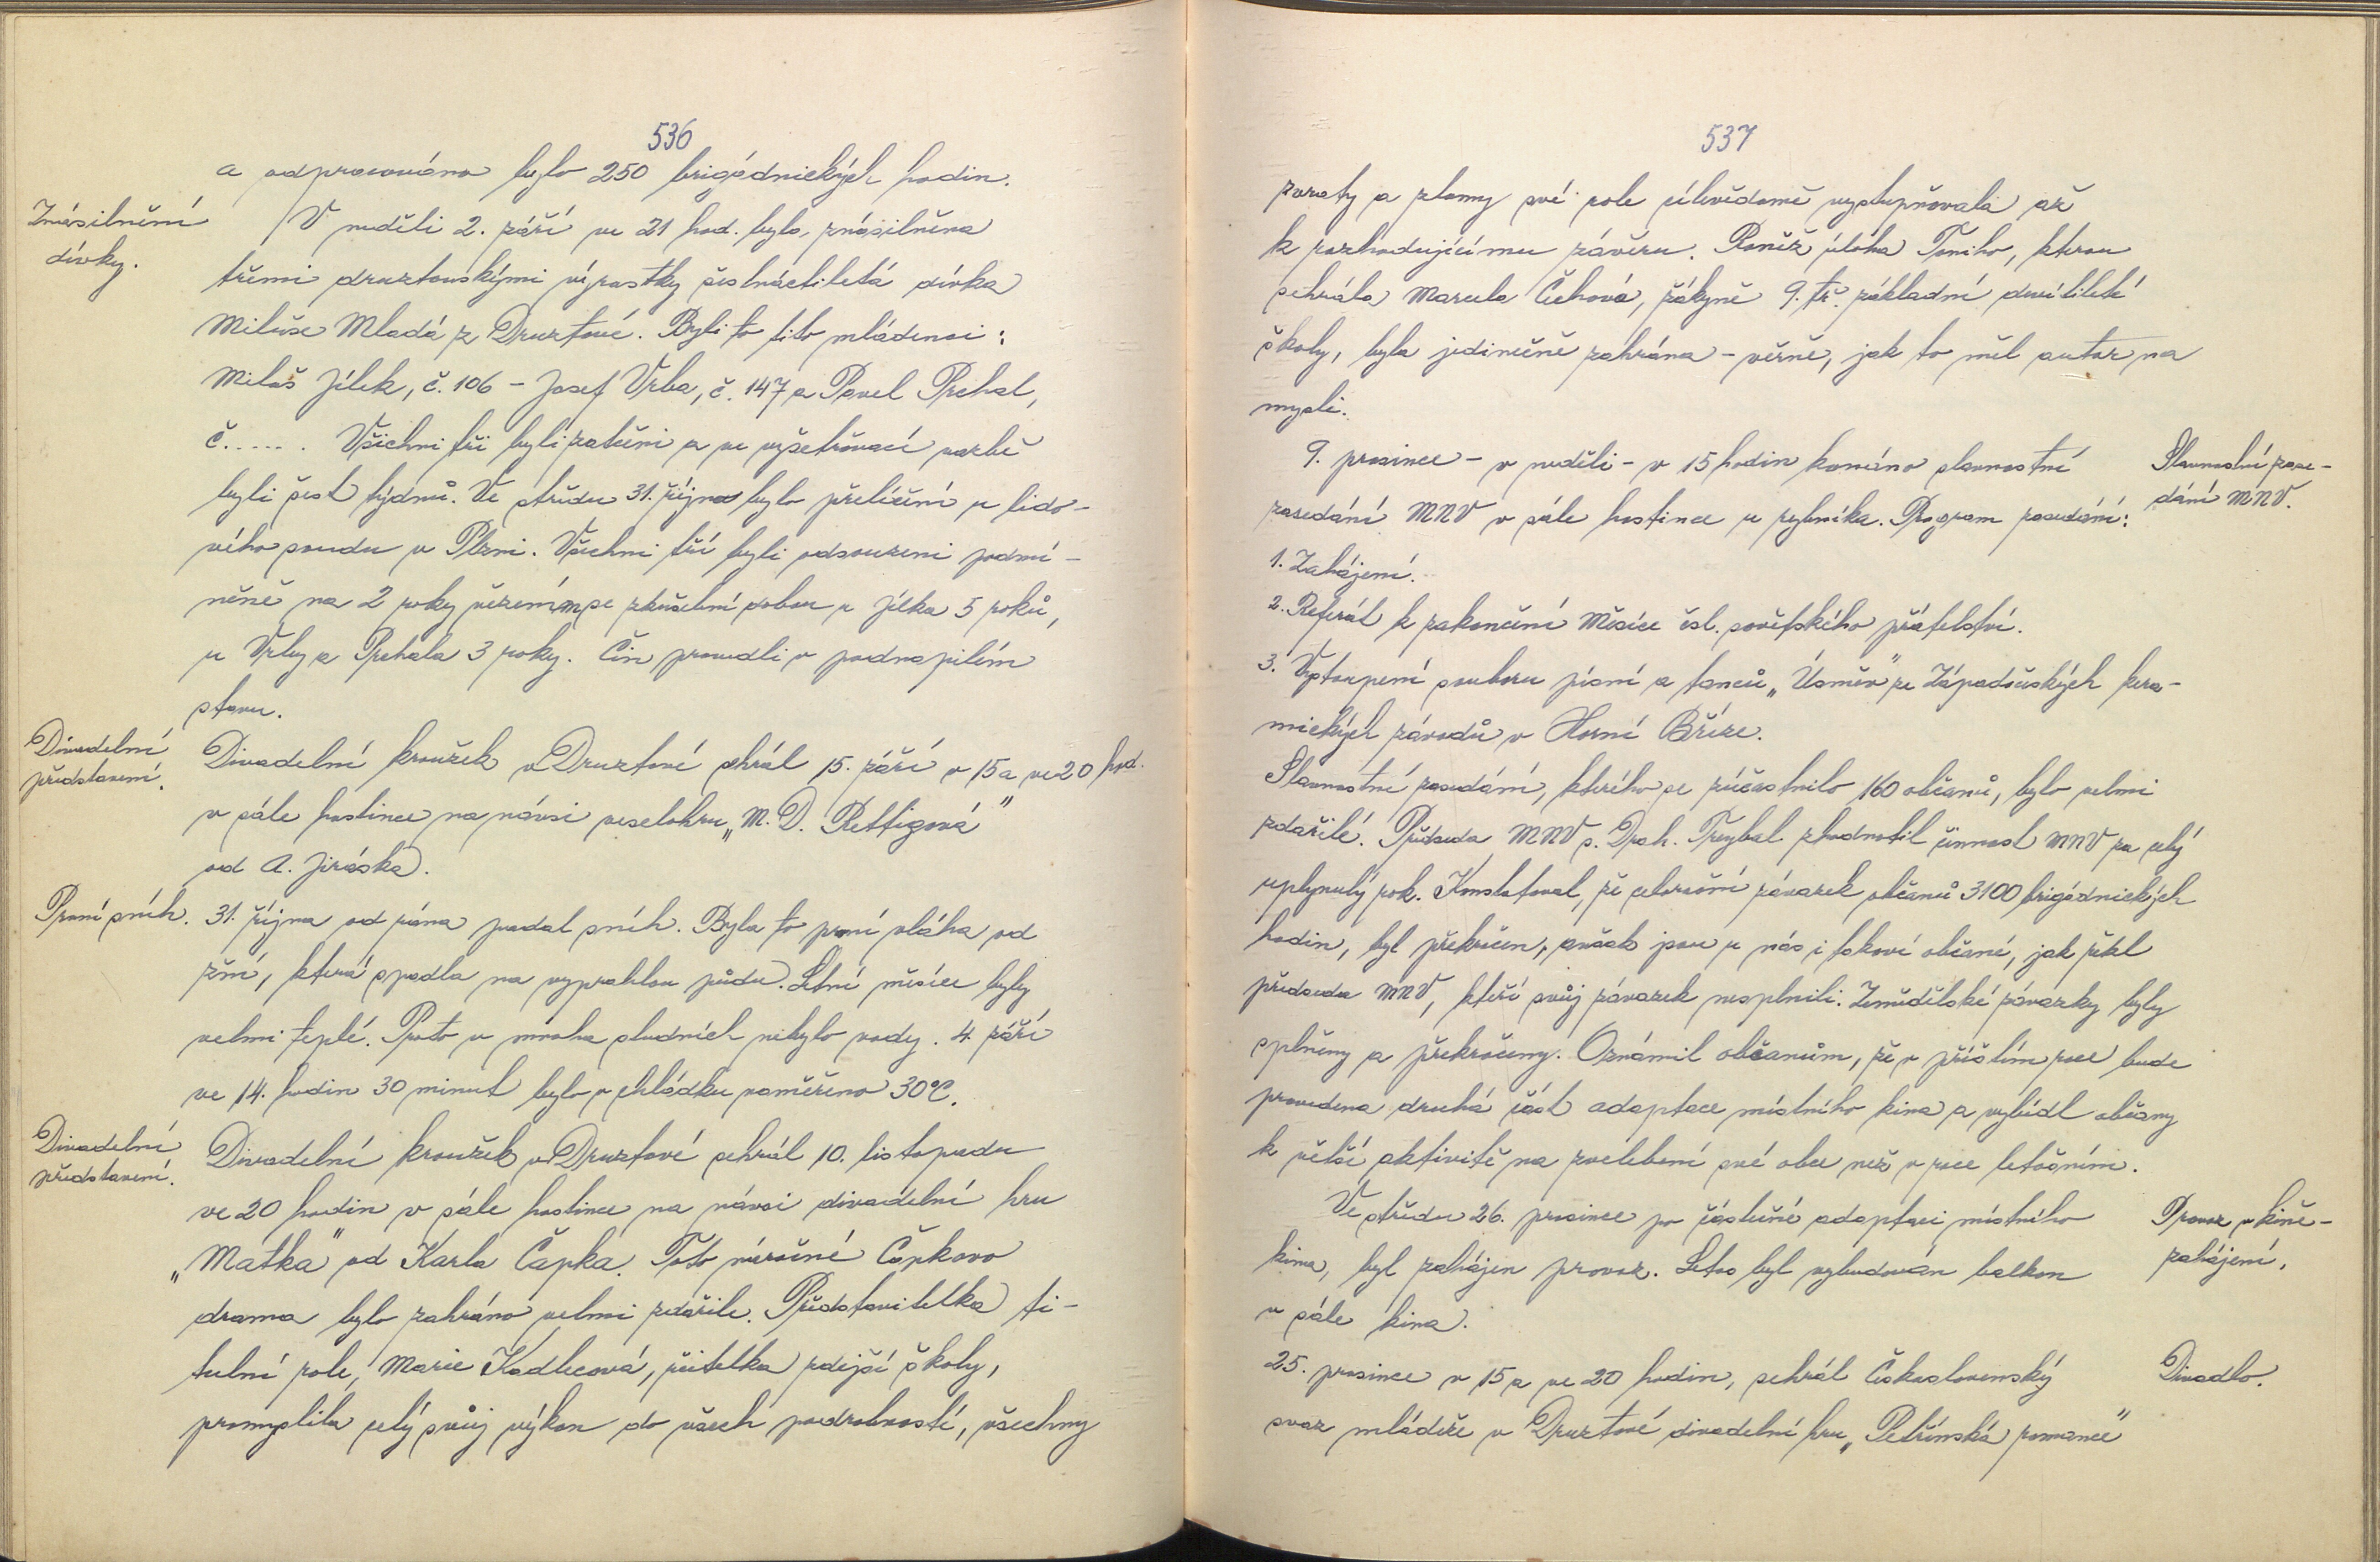 536
a odpracováno bylo 250 brigádnických hodin.
Znásilnění
dívky.
V neděli 2. září ve 21 hod. byla znásilněna
třemi druztovskými výrostky šestnáctiletá dívka
Miluše Mladá z Druztové. Byli to tito mládenci:
Miloš Jílek, č. 106 - Josef Vrba, č. 147 a Pavel Prchal,
č...... Všichni tři byli zatčeni a ve vyšetřovací vazbě
byli šest týdnů. Ve středu 31. října bylo přelíčení u lido-
vého soudu v Plzni. Všichni tři byli odsouzeni podmí-
něně na 2 roky vězením se zkušební dobou u Jílka 5 roků,
u Vrby a Prchala 3 roky. Čin provedli v podnapilém
stavu.
Divadelní
představení.
Divadelní kroužek v Druztové sehrál 15. září v 15 a ve 20 hod.
v sále hostince na návsi veselohru „M. D. Rettigová"
od A. Jiráska.
První sníh.
31. října od rána padal sníh. Byla to první vláha od
žní, která spadla na vyprahlou půdu. Letní měsíce byly
velmi teplé. Proto v mnoha studních nebylo vody. 4. září
ve 14. hodin 30 minut bylo v chládku naměřeno 30°C.
Divadelní
představení.
Divadelní kroužek v Druztové sehrál 10. listopadu
ve 20 hodin v sále hostince na návsi divadelní hru
„Matka" od Karla Čapka. Toto náročné Čapkovo
drama bylo zahráno velmi zdařile. Představitelka ti-
tulní role, Marie Kadlecová, učitelka zdejší školy,
promyslila celý svůj výkon do všech podrobností, všechny
537
zvraty a zlomy své role cílevědomě vystupňovala až
k rozhodujícímu závěru. Rovněž úloha Toniho, kterou
sehrála Marcela Čechová, žákyně 9. tř. základní devítileté
školy, byla jedinečně zahrána - věrně, jak to měl autor na
mysli.
9. prosince - v neděli - v 15 hodin konáno slavnostní
zasedání MNV v sále hostince u rybníka. Program zasedání:
Slavnostní zase-
dání MNV.
1. Zahájení.
2. Referát k zakončení Měsíce čsl. sovětského přátelství.
3. Vystoupení souboru písní a tanců „Úsměv" ze Západočeských kera-
mických závodů v Horní Bříze.
Slavnostní zasedání, kterého se zúčastnilo 160 občanů, bylo velmi
zdařilé. Předseda MNV s. Drah. Treybal zhodnotil činnost MNV za celý
uplynulý rok. Konstatoval, že celoroční závazek občanů 3100 brigádnických
hodin, byl překročen, avšak jsou u nás i takoví občané, jak řekl
předseda MNV, kteří svůj závazek nesplnili. Zemědělské závazky byly
splněny a překročeny. Oznámil občanům, že v příštím roce bude
provedena druhá část adaptace místního kina a vybídl občany
k větší aktivitě na zvelebení své obce než v roce letošním.
Ve středu 26. prosince po částečné adaptaci místního
kina, byl zahájen provoz. Letos byl vybudován balkon
v sále kina.
Provoz v kině-
zahájení.
25. prosince v 15 a ve 20 hodin, sehrál Československý
svaz mládeže v Druztové divadelní hru „Petřínská romance"
Divadlo.